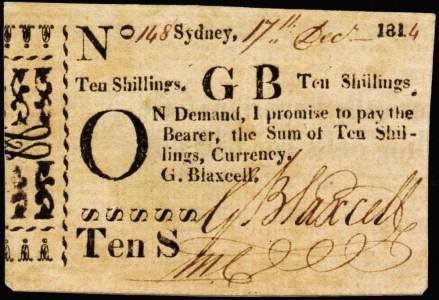 No 148 Sydney, 17th Decr 1814
Ten Shillings. G B Ten Shillings.
ON Demand, I promise to pay the
Bearer, the Sum of Ten Shil-
lings, Currency.
G. Blaxcell.
G Blaxcell
Ten S